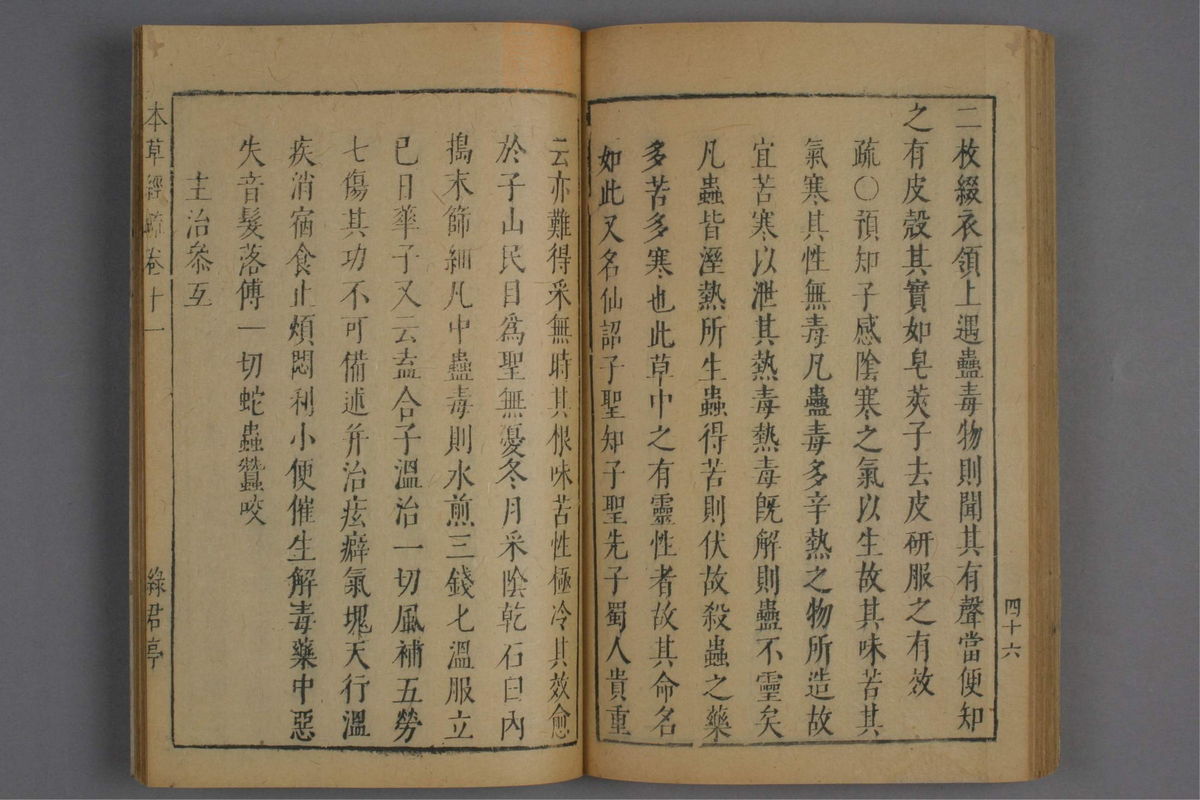 二枚綴衣領上遇蠱毒物則聞其有聲當便知
之有皮殼其實如皂莢子去皮研服之有效
疏○預知子感陰寒之氣以生故其味苦其
氣寒其性無毒凡蠱毒多辛熱之物所造故
宜苦寒以泄其熱毒熱毒旣解則蠱不靈矣
凡蟲皆溼熱所生蟲得苦則伏故殺蟲之藥
多苦多寒也此草中之有靈性者故其命名
如此又名仙詔子聖知子聖先子蜀人貴重
四十六
云亦難得采無時其根味苦性極冷其效愈
於子山民目爲聖無憂冬月采陰乾石臼內
搗末篩細凡中蠱毒則水煎三錢匕溫服立
已日華子又云盍合子溫治一切風補五勞
七傷其功不可備述幷治痃癖氣塊天行溫
疾消宿食止煩悶利小便催生解毒藥中惡
失音髮落傅一切蛇蟲蠶咬
主治叅互
本草經疏卷十一
綠君亭